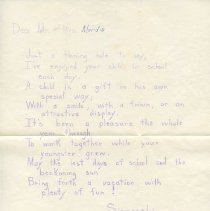 Dear Mr. and Mrs.
Just a rhyming note to say,
I've enjoyed your child in school
each day.
A child is a gift in his own
special way,
With a smile, with a frown, or an
attractive display.
It's been a pleasure the whole
year through
To work together while your
youngster grew.
May the last days of school and the
beckoning sun
Bring forth a vacation with
plenty of fun!